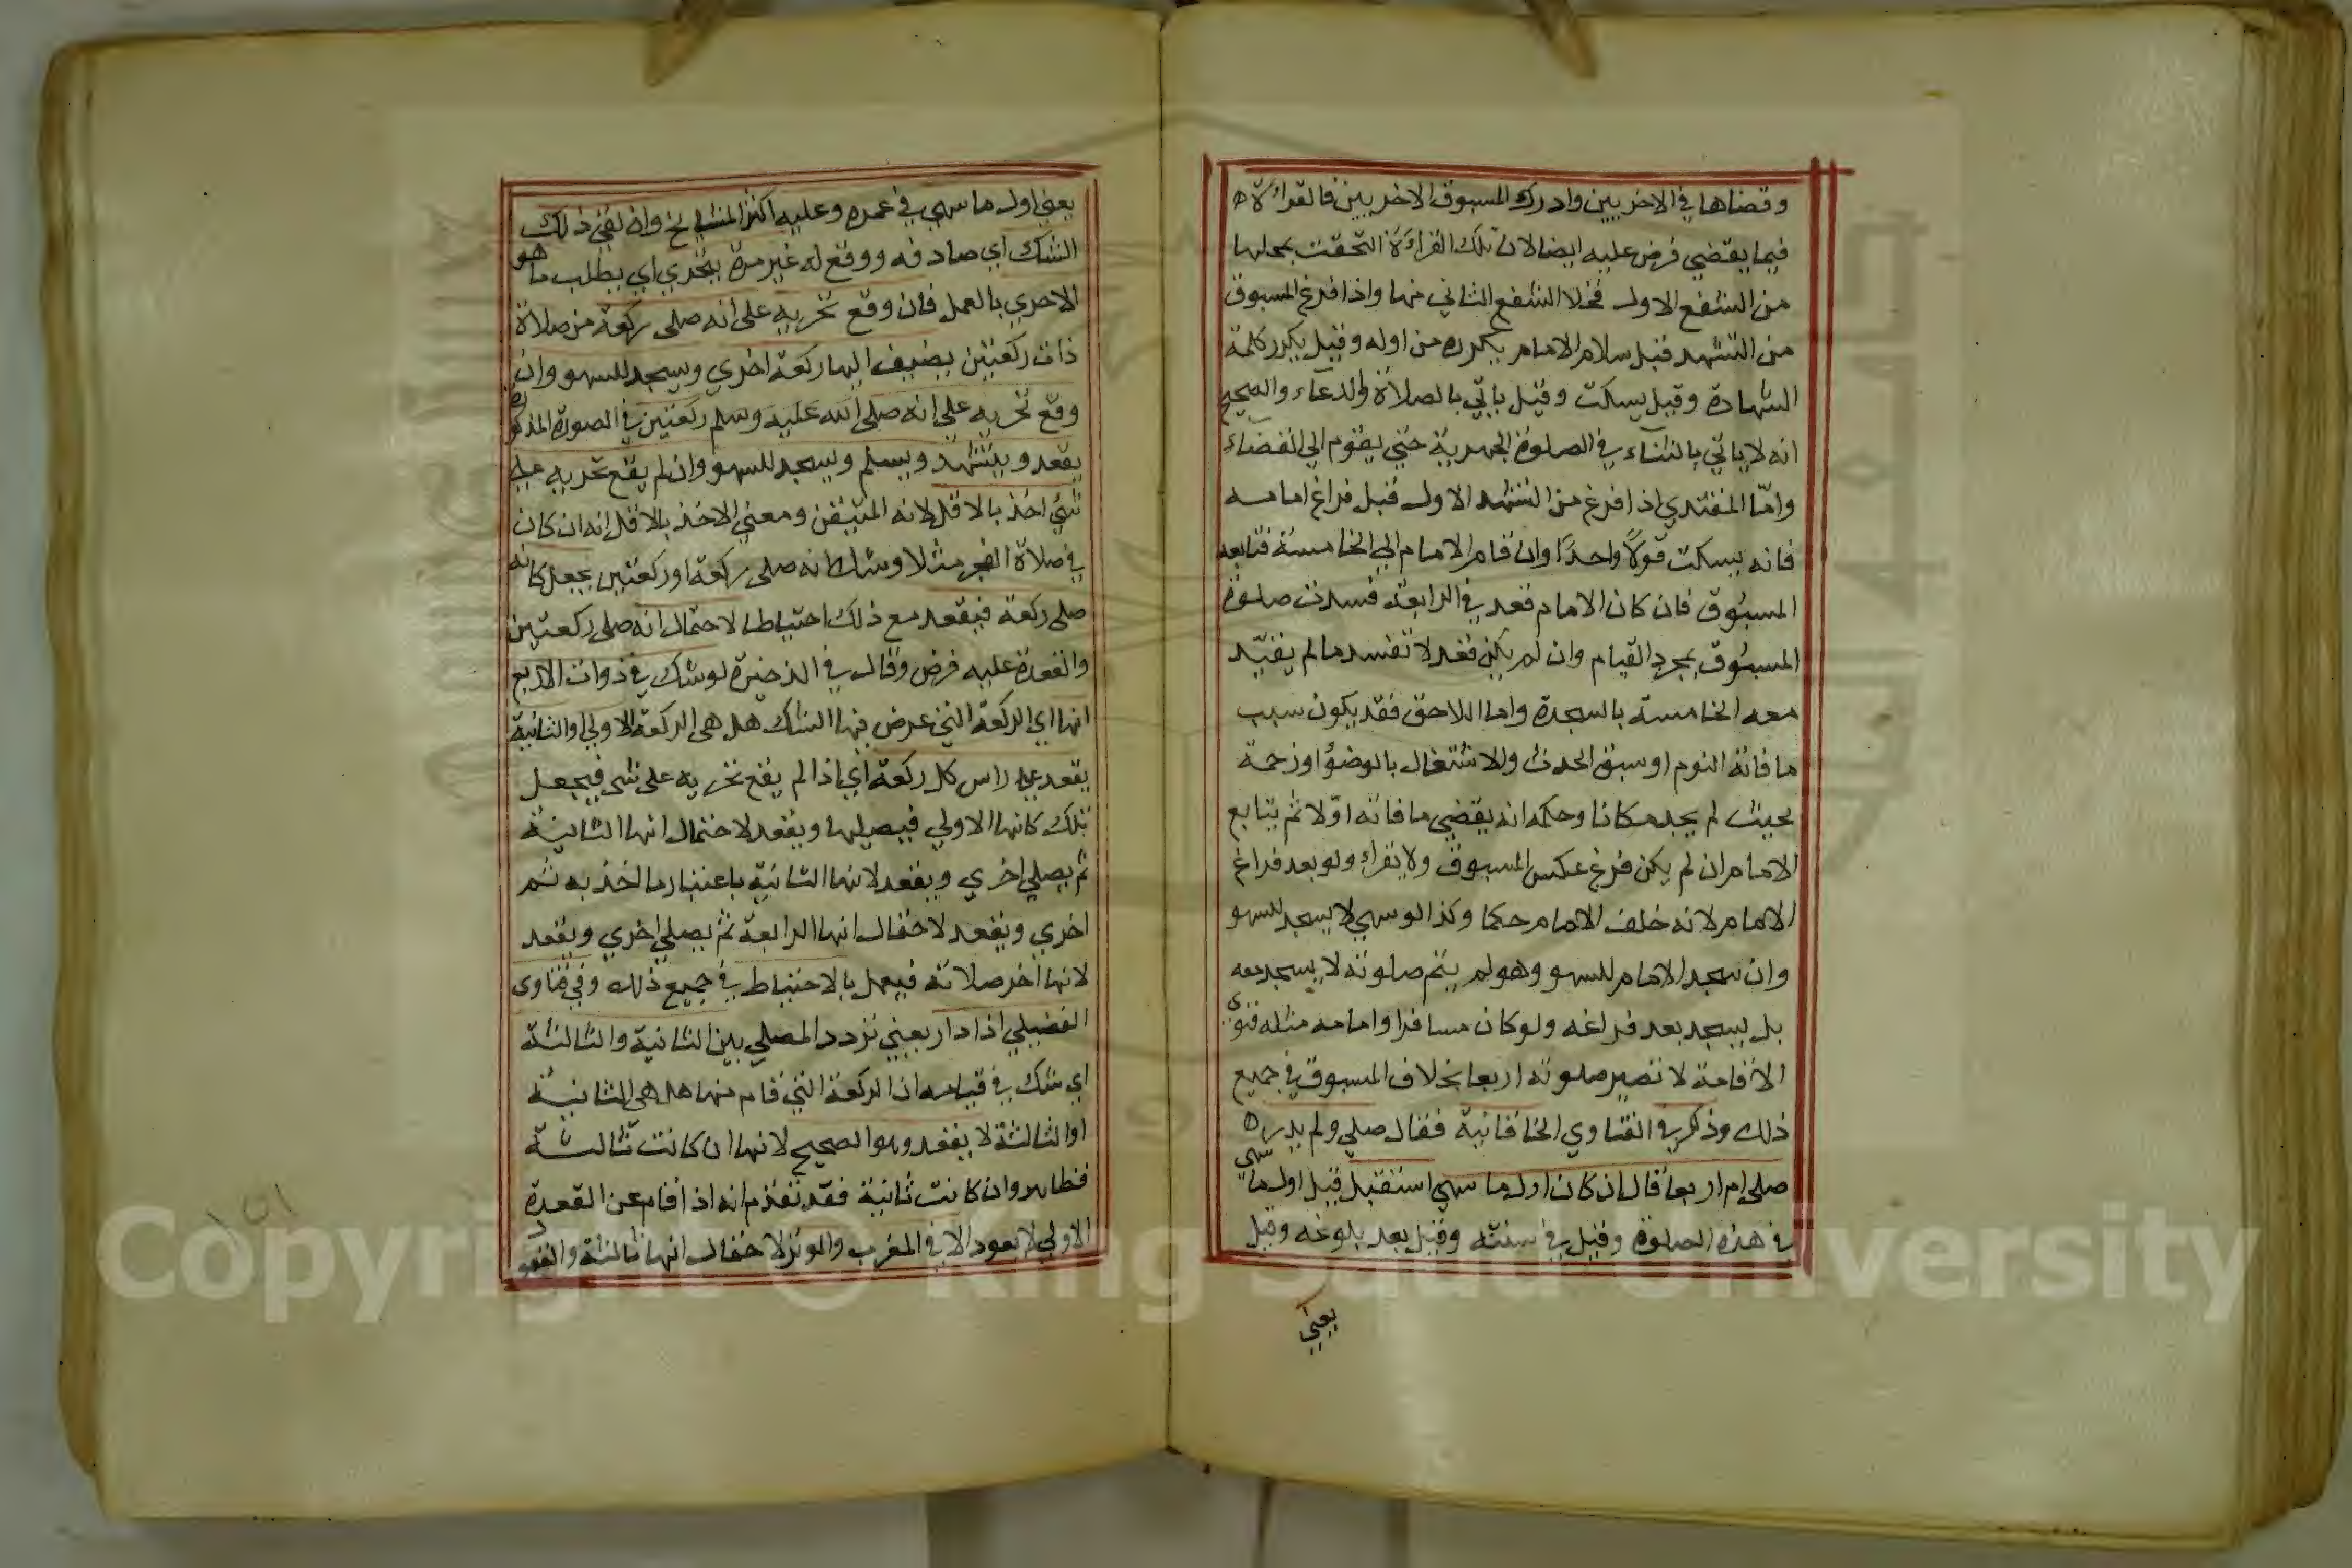 وقضاها في الاخريين وادرك المسبوق الاخريين فالقراءة
فيما يقضي فرض عليه ايضا لان تلك القراءة التحقت بمحلها
من الشفع الاول فخلا الشفع الثاني منها واذا فرغ المسبوق
من التشهد قبل سلام الامام يكرره من اوله وقيل يكرر كلمة
الشهادة وقيل يسكت وقيل ياتي بالصلاة والدعاء والصحيح
انه لا ياتي بالثناء في الصلوة الجهرية حتي يقوم الي القضاء
وامّا المقتدي اذا فرغ من التشهد الاول قبل فراغ امامه
فانه يسكت قولاً واحدًا وان قام الامام الي الخامسة فتابعه
المسبوق فان كان الامام قعد في الرابعة فسدت صلوة
المسبوق بمجرد القيام وان لم يكن قعد لا تفسد ما لم يقيّد
معه الخامسة بالسجدة واما اللاحق فقد يكون سبب
ما فاته النوم او سبق الحدث والاشتغال بالوضؤ او زحمة
بحيث لم يجد مكانا وحكمه انه يقضي ما فاته اوّلا ثم يتابع
الامام ان لم يكن فرغ عكس المسبوق ولا يقراء ولو بعد فراغ
الامام لانه خلف الامام حكما وكذا لو سهي لا يسجد للسهو
وان سجد الامام للسهو وهو لم يتم صلوته لا يسجد معه
بل يسجد بعد فراغه ولو كان مسافرا وامامه مثله فنوى
الاقامة لا تصير صلوته اربعا بخلاف المسبوق في جميع
ذلك وذكر في الفتاوي الخاقانية فقال صلي ولم يدر
صلى ام اربعا قال ان كان اول ما سهي استقبل قيل اول ما سهى
في هذه الصلوة وقيل في سنته وقيل بعد بلوغه وقيل
يعني
يعني اول ما سهي في عمره وعليه اكثر المشايخ وان لقي ذلك
الشك اي صادفه ووقع له غير مرة يتحري اي يطلب ما هو
الاحري بالعمل فان وقع تحريه على انه صلى ركعة من صلاة
ذات ركعتين يضيف اليها ركعة اخري ويسجد للسهو وان
وقع تحريه على انه صلى الله عليه وسلم ركعتين في الصورة المذكورة
يقعد ويتشهد ويسلم ويسجد للسهو وان لم يقع تحريه علي
شئ اخذ بالاقل لانه المتيقن ومعني الاخذ بالاقل انه ان كان
في صلاة الفجر مثلا وشك انه صلى ركعة او ركعتين يجعل كانه
صلى ركعة فيقعد مع ذلك احتياطا لاحتمال انه صلى ركعتين
والقعدة عليه فرض وقال في الذخيرة لو شك في ذوات الاربع
انها اي الركعة التي عرض فيها الشك هل هى الركعة الاولي او الثانية
يقعد علي راس كل ركعة اي اذا لم يقع تحريه على شى فيجعل
تلك كانها الاولي فيصليها ويقعد لاحتمال انها الثانية
ثم يصلي اخري ويقعد لانها الثانية باعتبار ما اخذ به ثم
اخري ويقعد لاحتمال انها الرابعة ثم يصلي اخري ويقعد
لانها اخر صلاته فيعمل بالاحتياط في جميع ذلك وفي فتاوى
الفضيلي اذا دار يعني تردد المصلي بين الثانية والثالثة
اي شك في قيامه ان الركعة التي قام منها هل هى الثانية
او الثالثة لا يقعد وهو الصحيح لانها ان كانت ثالثة
فظاهر وان كانت ثانية فقد تقدم انه اذا قام عن القعدة
الاولي لا يعود الا في المغرب والوتر لاحتمال انها ثالثة والقعود